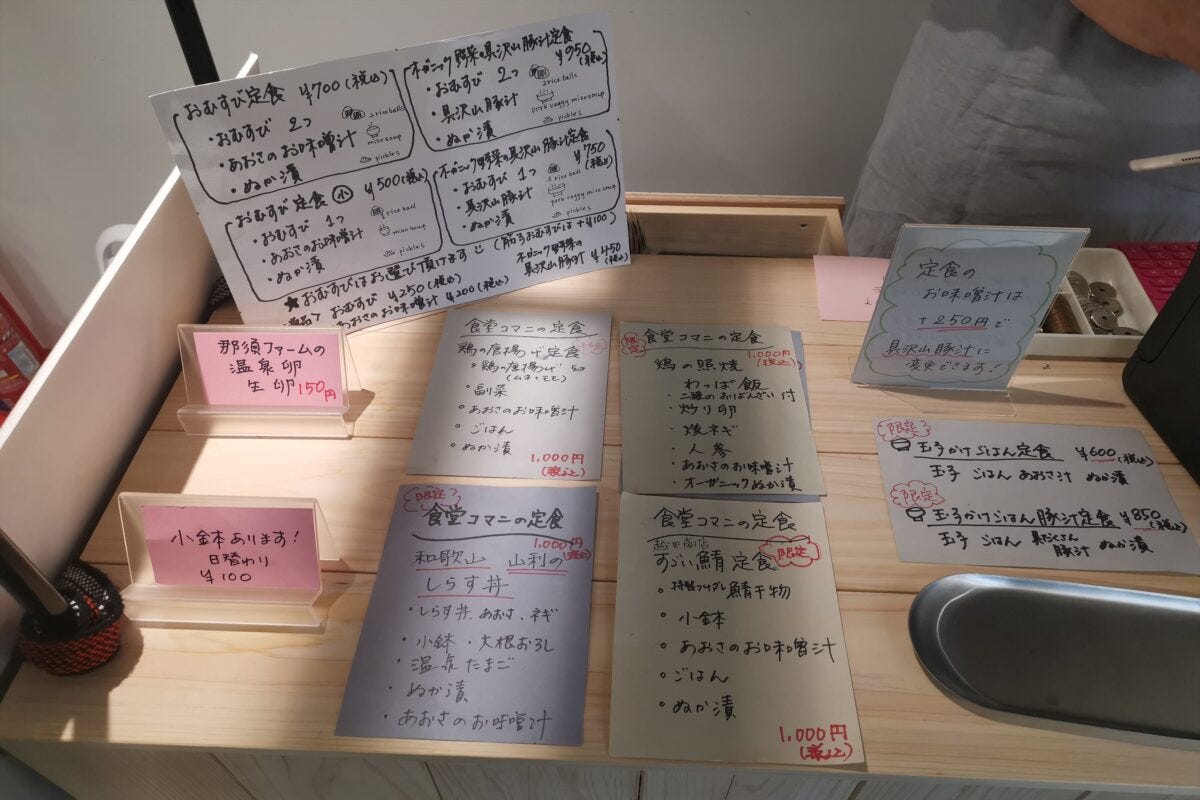 おむすび定食 ¥700(税込)
・おむすび 2つ
2 rice balls
・あおさのお味噌汁
miso soup
・ぬか漬
pickles
オーガニック野菜の具沢山豚汁定食
¥950(税込)
・おむすび 2つ
2 rice balls
・具沢山豚汁
pork veggy miso soup
・ぬか漬
pickles
おむすび定食 小 ¥500(税込)
・おむすび 1つ
1 rice ball
・あおさのお味噌汁
miso soup
・ぬか漬
pickles
オーガニック野菜の具沢山豚汁定食
¥750(税込)
・おむすび 1つ
1 rice ball
・具沢山豚汁
pork veggy miso soup
・ぬか漬
pickles
★おむすびはお選び頂けます (筋子おむすびは+¥100)
単品 おむすび ¥250(税込)
あおさのお味噌汁 ¥200(税込)
オーガニック野菜の
具沢山豚汁 ¥450(税込)
那須ファームの
温泉卵
生卵 150円
小鉢あります!
日替わり
¥100
食堂コマニの定食
鶏の唐揚げ定食
・鶏の唐揚げ 5コ
(ムネ・モモ)
・副菜
・あおさのお味噌汁
・ごはん
・ぬか漬
1,000円
(税込)
限定
食堂コマニの定食
1,000円
(税込)
鶏の照焼
わっぱ飯
・二種のおばんざい付
・炒り卵
・焼ネギ
・人参
・あおさのお味噌汁
・オーガニックぬか漬
限定
食堂コマニの定食
1,000円
(税込)
和歌山 山利の
しらす丼
・しらす丼、あおさ、ネギ
・小鉢・大根おろし
・温泉たまご
・ぬか漬
・あおさのお味噌汁
食堂コマニの定食
越田商店
限定
すごい鯖定食
・特製つけダレ鯖干物
・小鉢
・あおさのお味噌汁
・ごはん
・ぬか漬
1,000円
(税込)
定食の
お味噌汁は
+250円で
具沢山豚汁に
変更できます!
限定
玉子かけごはん定食 ¥600(税込)
玉子 ごはん あおさ汁 ぬか漬
限定
玉子かけごはん豚汁定食 ¥850(税込)
玉子 ごはん 具だくさん豚汁 ぬか漬